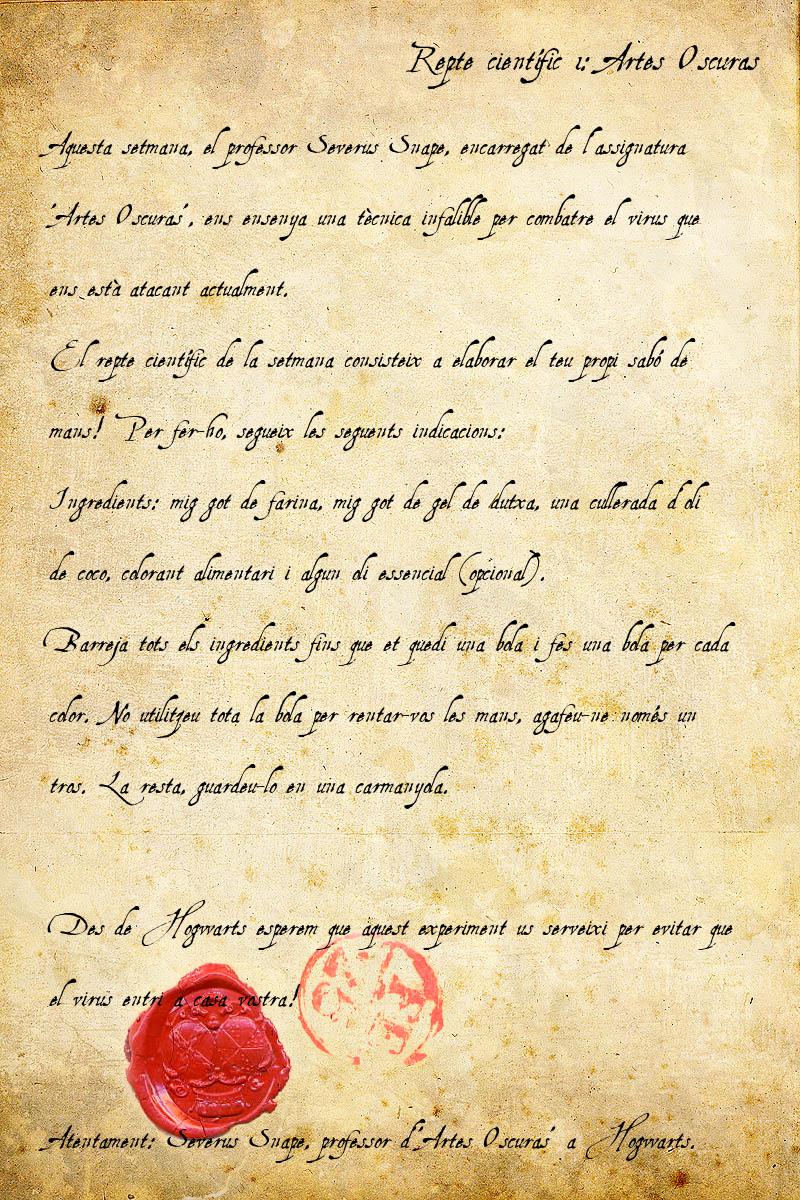 Repte científic 1: Artes Oscuras
Aquesta setmana, el professor Severus Snape, encarregat de l'assignatura
'Artes Oscuras', ens ensenya una tècnica infalible per combatre el virus que
ens està atacant actualment.
El repte científic de la setmana consisteix a elaborar el teu propi sabó de
mans! Per fer-ho, segueix les seguents indicacions:
Ingredients: mig got de farina, mig got de gel de dutxa, una cullerada d'oli
de coco, colorant alimentari i algun oli essencial (opcional).
Barreja tots els ingredients fins que et quedi una bola i fes una bola per cada
color. No utilitzeu tota la bola per rentar-vos les mans, agafeu-ne només un
tros. La resta, guardeu-lo en una carmanyola.
Des de Hogwarts esperem que aquest experiment us serveixi per evitar que
el virus entri a casa vostra!
Atentament: Severus Snape, professor d'Artes Oscuras' a Hogwarts.